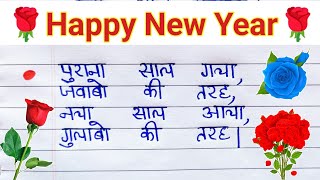 Happy New Year
पुराना साल गया,
जवाबो की तरह,
नया साल आया,
गुलाबो की तरह।